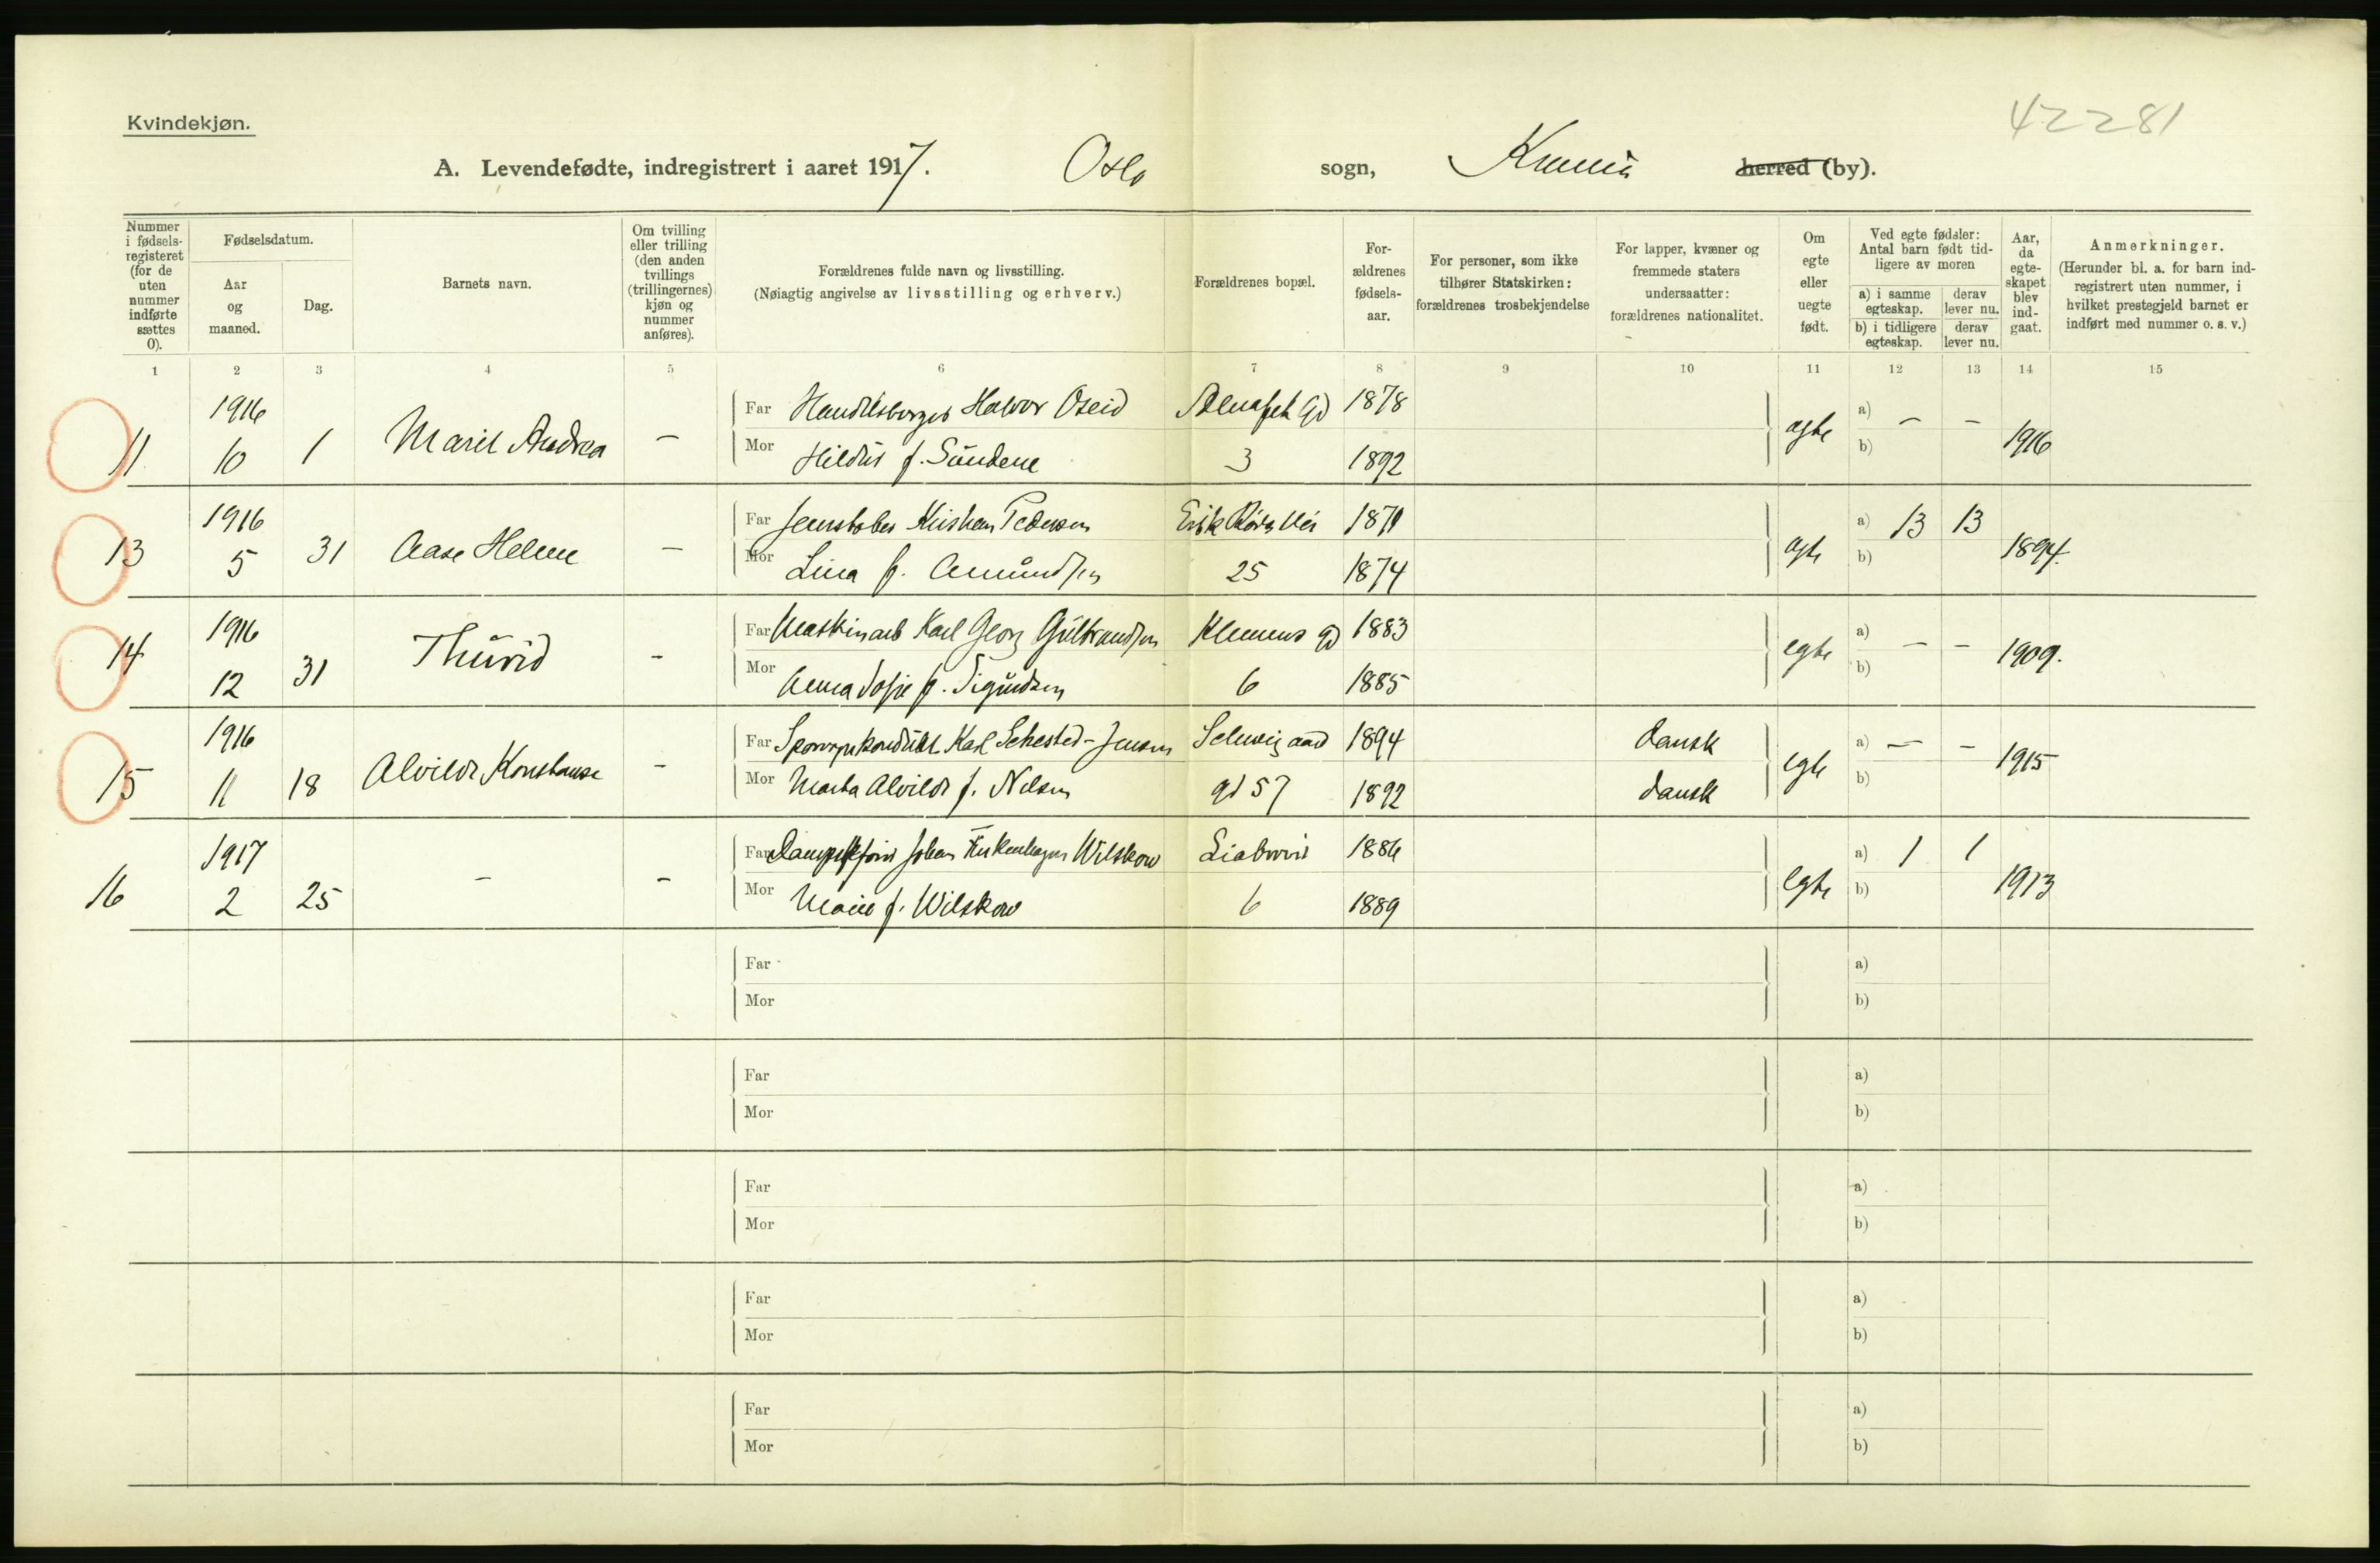 42281
Kvindekjøn.
A. Levendefødte, indregistrert i aaret 1917. Oslo sogn, herred (by).
Nummer i fødsels-registeret (for de uten nummer indførte sættes 0).
Fødselsdatum.
Aar og maaned.
Dag.
Barnets navn.
Om tvilling eller trilling (den anden tvillings (trillingernes) kjøn og nummer anføres).
Forældrenes fulde navn og livsstilling.
(Nøiagtig angivelse av livsstilling og erhverv.)
Forældrenes bopæl.
For-ældrenes fødsels-aar.
For personer, som ikke tilhører Statskirken: forældrenes trosbekjendelse
For lapper, kvæner og fremmede staters undersaatter: forældrenes nationalitet.
Om egte eller uegte født.
Ved egte fødsler: Antal barn født tid-ligere av moren
a) i samme egteskap.
derav lever nu.
b) i tidligere egteskap.
derav lever nu.
Aar, da egte-skapet blev ind-gaat.
Anmerkninger.
(Herunder bl. a. for barn ind-registrert uten nummer, i hvilket prestegjeld barnet er indført med nummer o. s. v.)
1 2 3 4 5 6 7 8 9 10 11 12 13 14 15
1916 Far Halvor Oseid 1878 a) - -
11 10 1 Marit Andrea - Mor f. Sundene 3 1892 b) 1916
1916 Far Pedersen 25 a) 13 13
13 5 31 Aase Helene - Mor Lina f. Amundsen 1874 b) 1894.
1916 Far Maskinarb Karl Georg Gulbrandsen Klemens gd 1883 egte a) - -
14 12 31 Thurid - Mor Anna Sofie f. Sigurdsen 6 1885 b) 1909.
1916 Far Karl Sehested-Jensen 1894 dansk egte a) - -
15 11 18 Alvilde Konstanse - Mor Marta Alvilde f. Nilsen gd 57 1892 dansk b) 1915
1917 Far Johan Wilskow 1886 egte a) 1 1
16 2 25 - - Mor f. Wilskow 6 1889 b) 1913
Far a)
Mor b)
Far a)
Mor b)
Far a)
Mor b)
Far a)
Mor b)
Far a)
Mor b)